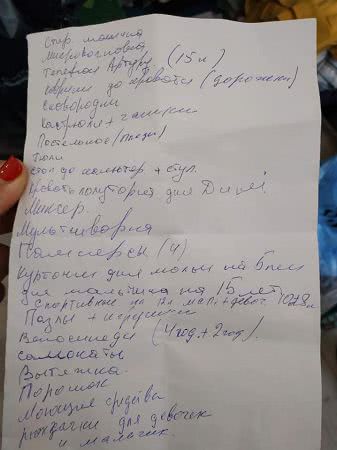 Стир. машина
Микроволновка
Телевизор Артуру (15л)
коврики до кровати (дорожки)
Сковородки
Кастрюля + чашки
Постельное (пледы)
Тюли
Стол до компютер + стул.
Кровать полуторка для Димы
Миксер.
Мультиварка
Памперсы (4)
Куртки для мальч на 5 лет
для мальчика на 15 лет
Спортивные на 12л мал. + девоч 10
Пазлы + игрушки
Велосипеды (4год. + 2год).
самокаты
Вытяжка.
Порошок
Моющие средства
рюкзачки для девочек
и мальчик.